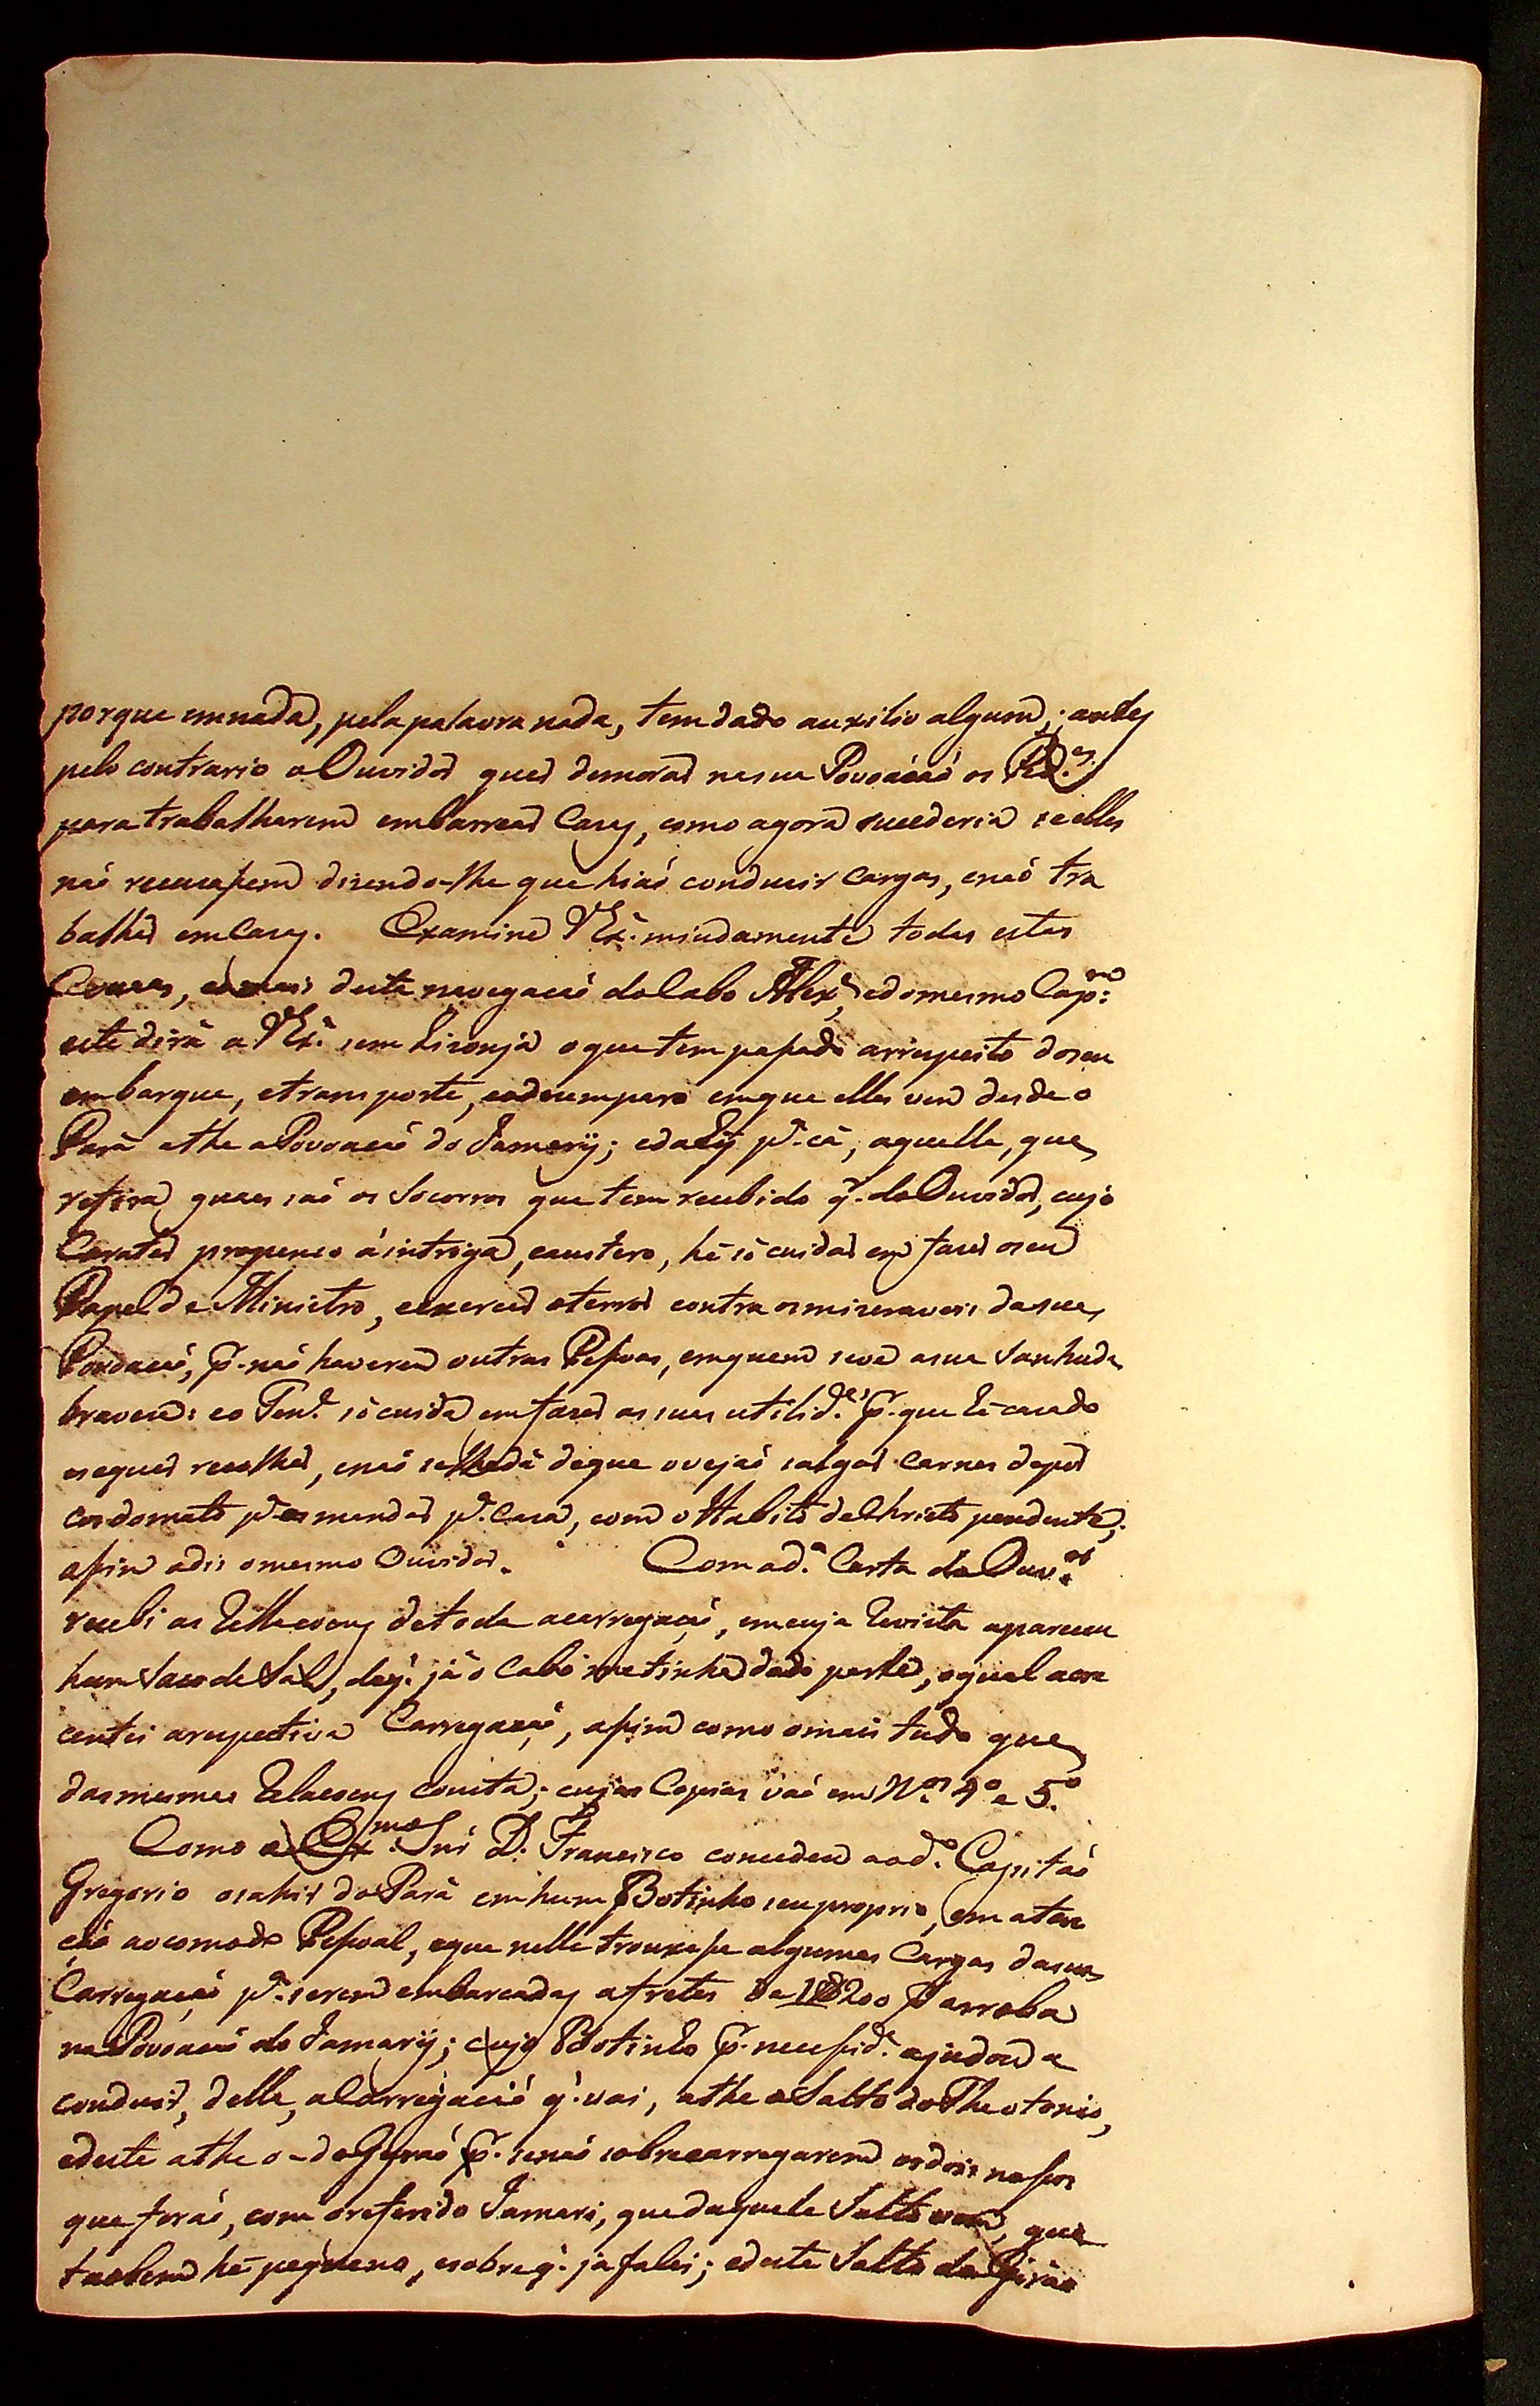 porque emnada, pela palavra nada, tem dado auxilio algum; antes
pelo contrario o Ouvidor quer demorar nasua Povoaçaõ os Ped.es
para trabalharem embarrear Casas, como agora sucederia se elles
naõ recusasem dizendo-lhe que hiaõ conducir cargas, enaõ tra
balhar em Casas. Examine VEx.ª miudamente todas estas
Couzas, edemais desta navegacaõ do Cabo Alex.e, edomesmo Cap.m:
este dirá a VEx.ª sem Lizonja oque tem pasado arrespeito doseu
embarque, etransporte, eodesemparo emque elles vem desde o
Pará athe aPovoacaõ do Jamarÿ; edalÿ p.ª cá, aquelle, que
refira quaes saõ os Socorros que tem recebido q.' do Ouvidor, cujo
Carater propenço áintriga, eaustero, hé só cuidar em fazer oseu
Papel de Ministro, eexercer oterror contra osmizeraveis dasua
Povoacaõ, p.r naõ haverem outras Pesoas, emquem seve asua Sanhuda
braveza: eo Ten.e só cuida emfazer as suas utilid.es p.r que hé cazado
esequer recolher, enaõ selhedá deque ovejaõ salgar Carnes depor
cosdomato p.ª asmandar p.ª Caza, com o Habito deChristo pendente;
asim odis omesmo Ouvidor. Com ad.ª Carta do Ouv.or
recebi as Rellacoens detoda acarregaçaõ, emcuja Revista apareceu
hum Saco de Sal, deq.' já o Cabo metinha dado parte, oqual acre
centei arespectiva Carregaçaõ, asim como omais tudo que
dasmesmas Relacoens consta; cujas Copias vaõ em N.os 4.º e 5.º
Como o Ex.mo Snr D. Francisco concedeu aod.º Capitaõ
Gregorio osahir do Pará em hum Botinho seu proprio, em aten
çaõ aocomodo Pesoal, eque nelle trouxese algumas Cargas dasua
Carregaçaõ p.ª serem embarcadas afretes de 1200 p.r arroba
na Povoacaõ do Jamarÿ; cujo Botinho p.r necesid.e ajudou a
conduzir, delle, aCarregacaõ q.' vai, athe o Salto do Theotonio,
edeste athe o do Giraõ p.r senaõ sobrecarregarem osdois nosos
que foraõ, com oreferido Jamari, que daquele Salto vem, que
taobem hé pequeno, esobre q.' ja falei; edeste Salto do Giraõ